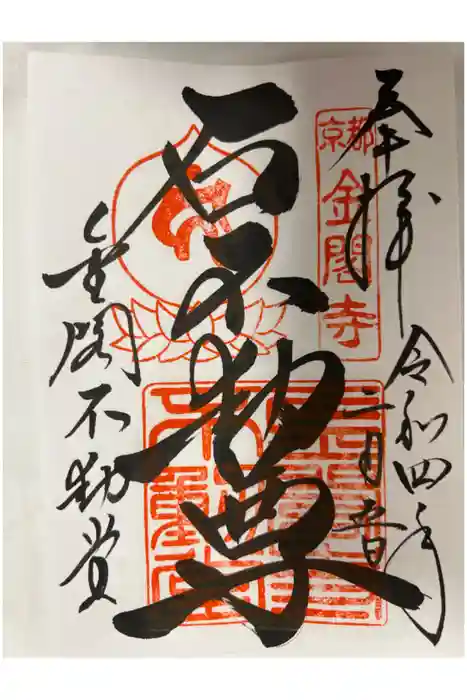 奉拝
令和四年
二月
京都
金閣寺
石不動尊
金閣不動堂